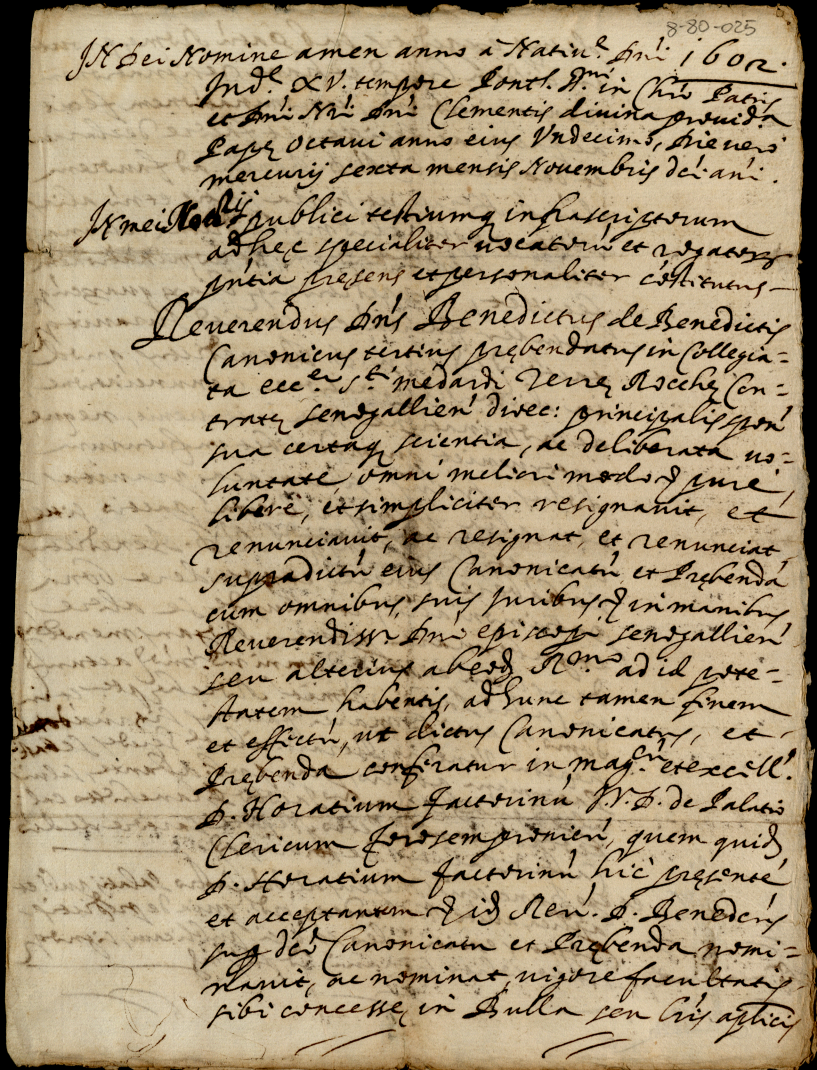 8-80-025
JN Dei Nomine amen anno à Natiu.e Dni 1602.
Jnd.e XV. tempore Pont. in Chro Patris
et Dni Nri Dni Clementis diuina prouid.a
Papę Octaui anno eius Vndecimo, Die uero
mercurij sexta mensis Nouembris dci ani.
JN mei Notrij publici testiumq infrascriptorum
ad hęc specialiter uocatorũ et rogator
pntia pręsens et personaliter cõstitutus
Reuerendus Dns Benedictus de Benedictis
Canonicus tertius prębendatus in Collegia=
ta ecc.a S.ti medardi Terrę Rocchę Con=
tratę senogallien dioec: principalis spon
sua certaq scientia, ac deliberata uo=
luntate, omni meliori modo & pure,
libere, et simpliciter resignauit, et
renunciauit, ac resignat, et renunciat
supradictũ eius Canonicatũ et Prębendã
cum omnibus suis juribus & in manibus
Reuerendiss. Dni episcopi senogallien
seu alterius ab eod R.mo ad id pote=
statem habentis, ad hunc tamen finem
et effectũ, ut dictus Canonicatus, et
Prębenda conferatur in mag.cu et excell.
D. Horatium factorinũ V.J.D. de Palatio
Clericum forosempronien, quem quid
D. Horatium factorinũ hic pręsentẽ
et acceptantem & id Reu. D. Benedcus
suo dco Canonicatu et Prębenda nomi=
nauit, ac nominat, uigore facultatis
sibi concessę in Bulla seu lris aplicis